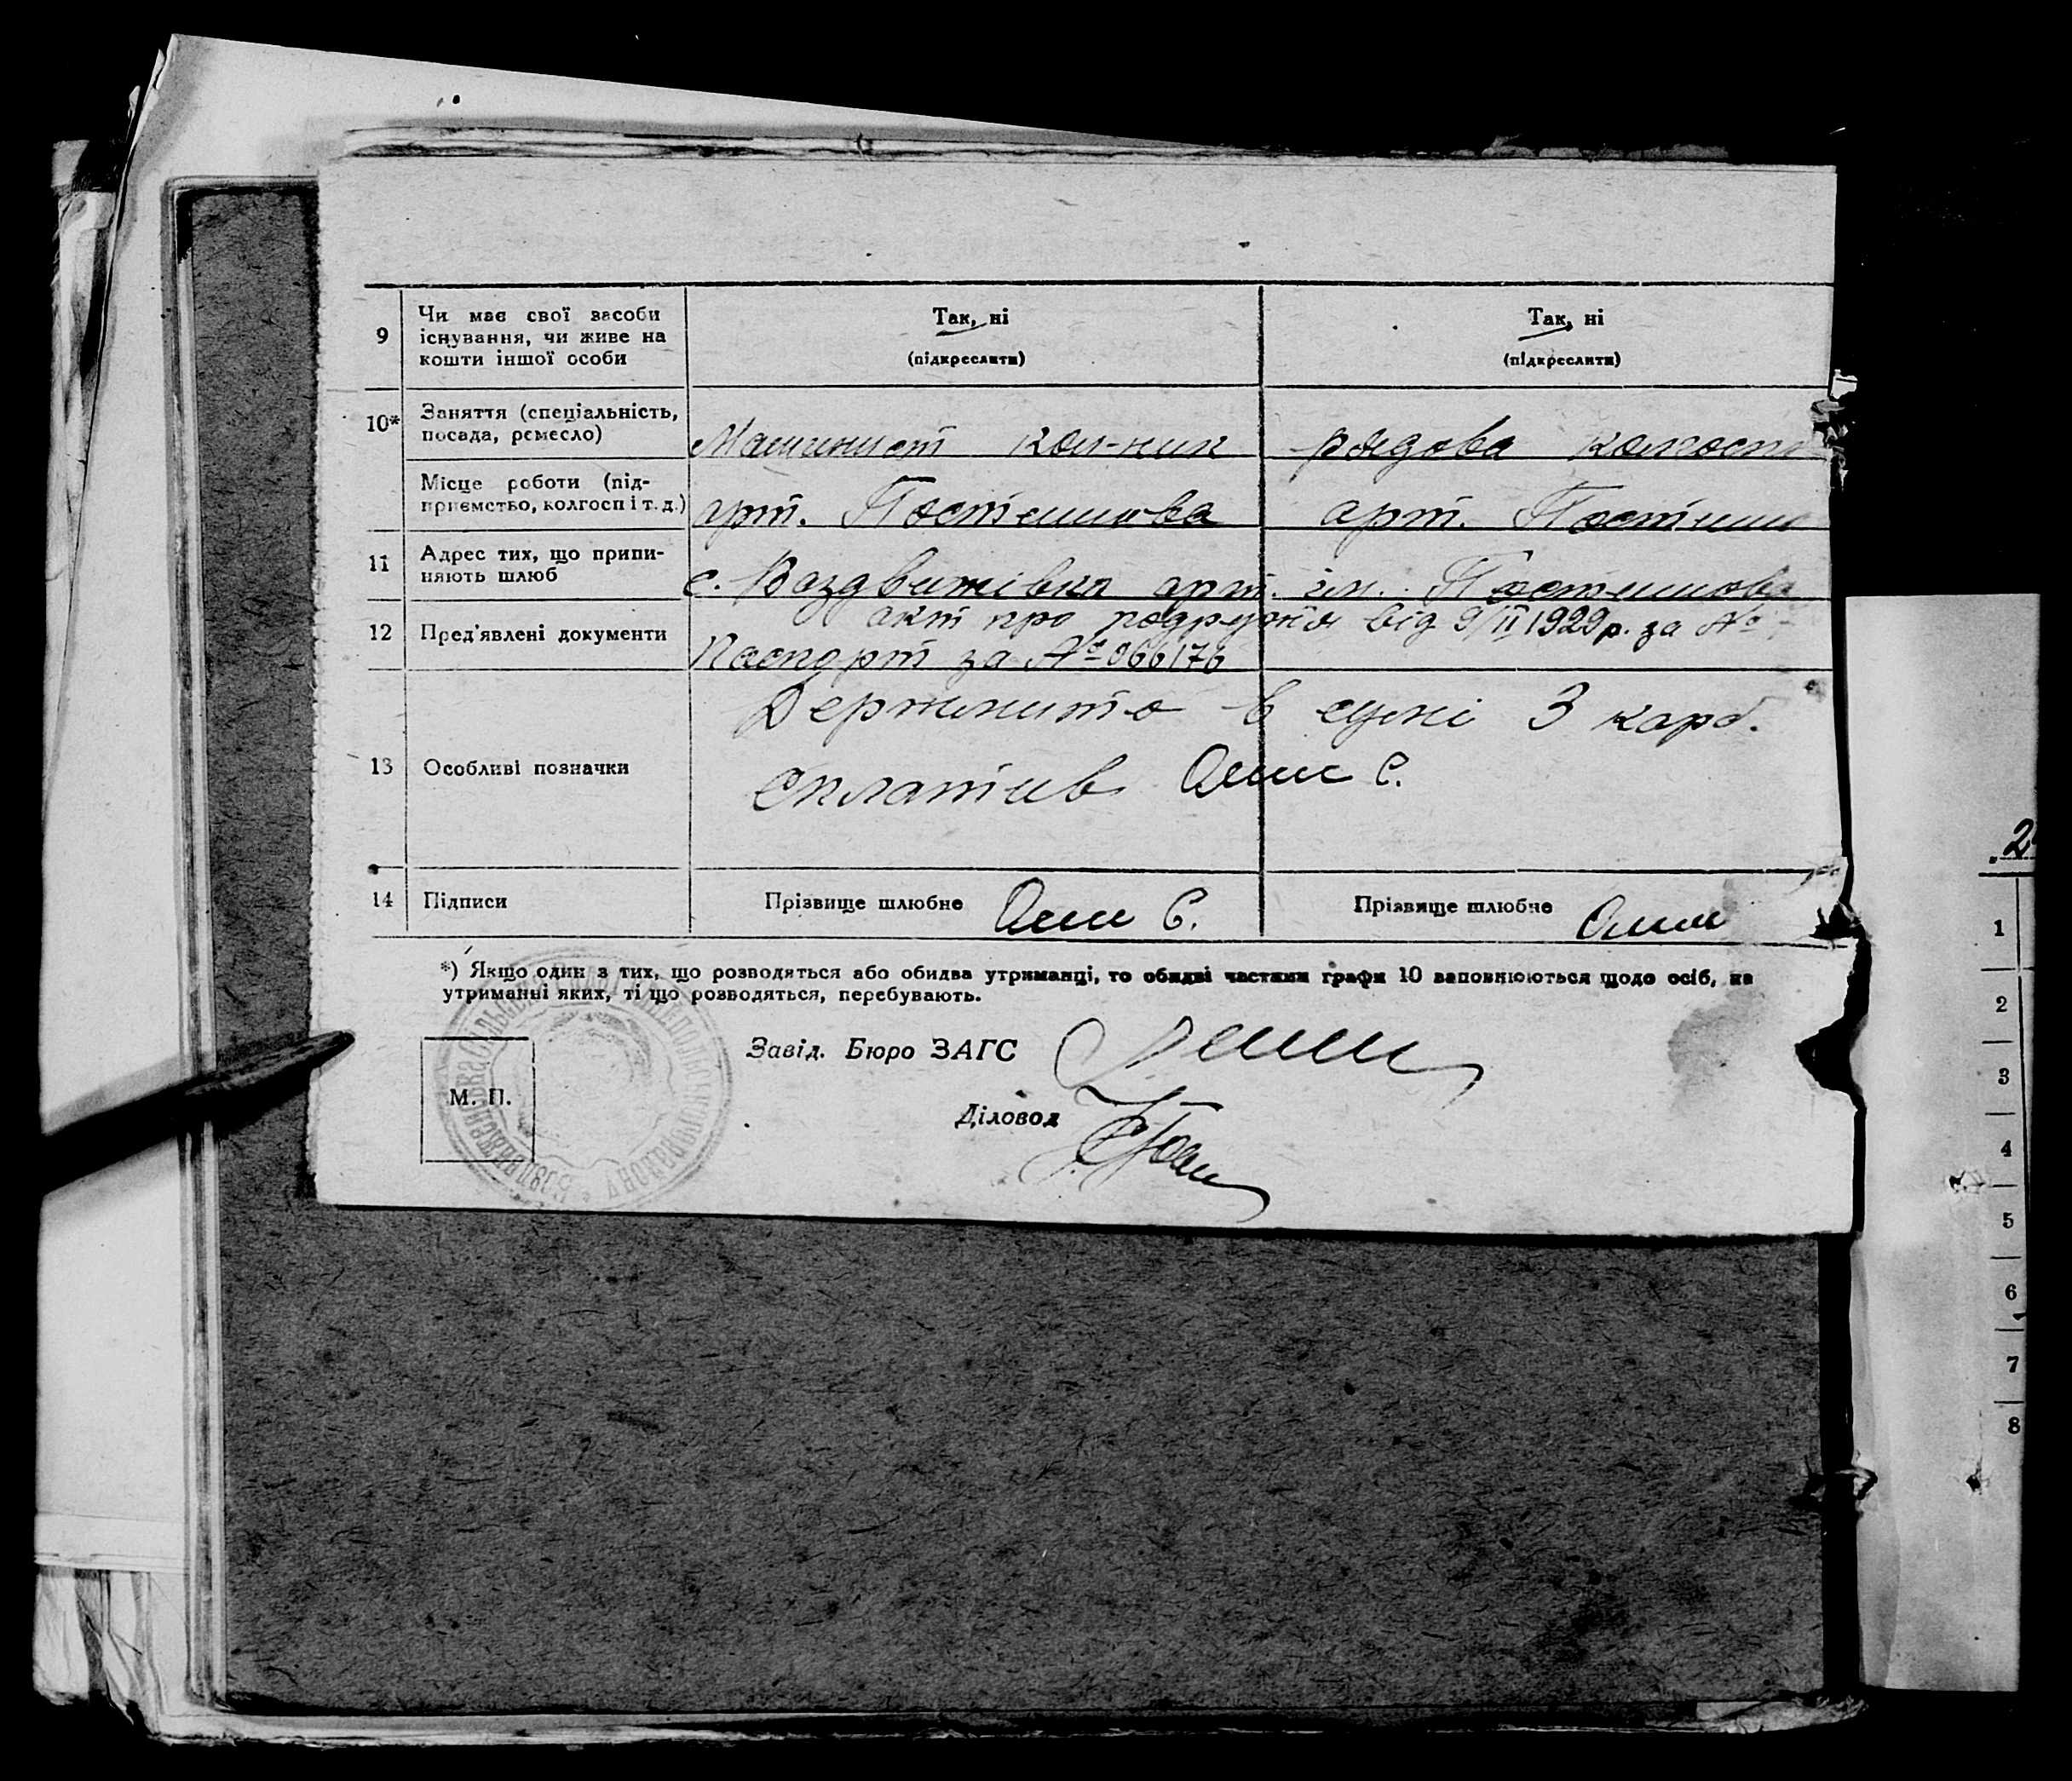 9
Чи має свої засоби
існування, чи живе на
кошти іншої особи
Так, ні
(підкреслити)
Так, ні
(підкреслити)
10*
Заняття (спеціальність,
посада, ремесло)
Машинист кол-ник
рядова колгосп
Місце роботи (під-
приємство, колгосп і т. д.)
арт. Постишова
арт. Постиш
11
Адрес тих, що припи-
няють шлюб
с. Воздвижівка арт. ім. Постишова
12
Пред'явлені документи
акт про подружжя від 9/II 1929 р. за №
Паспорт за № 066176
13
Особливі позначки
Держмито в сумі 3 карб.
сплатив С.
14
Підписи
Прізвище шлюбне
С.
Прізвище шлюбне
*) Якщо один з тих, що розводяться або обидва утриманці, то обидві частини графи 10 заповнюються щодо осіб, на
утриманні яких, ті що розводяться, перебувають.
Завід. Бюро ЗАГС
М. П.
Діловод
2
1
2
3
4
5
6
7
8